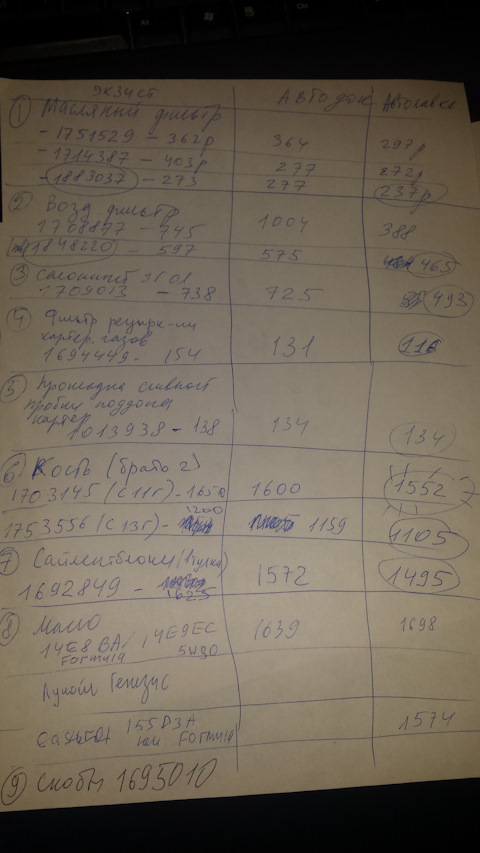 экзист Автодок Автолавка
① Масляный фильтр
- 1751529 - 362р 364 297р
- 1714387 - 403р 277 272р
- 1883037 - 273 277 237р
② Возд. фильтр
1708877 - 745 1004 388
1848220 - 597 575 465
③ Салонный
1709013 - 738 725 493
④ Фильтр рецирк-ии
картер. газов
1694449 - 154 131 116
⑤ Прокладка сливной
пробки поддона
картер
1013938 - 138 134 134
⑥ Кость (брать 2)
1703145 (с 11г) - 1650 1600 1552
1200
1753556 (с 13г) - 1159 1105
⑦ Сайлентблоки (втулки)
1692849 - 1572 1495
1625
⑧ Масло
14E8BA/14E9EC 1639 1698
Formula 5W30
Лукойл Генезис
Castrol 155D3A 1574
или Formula
⑨ Скобы 1695010